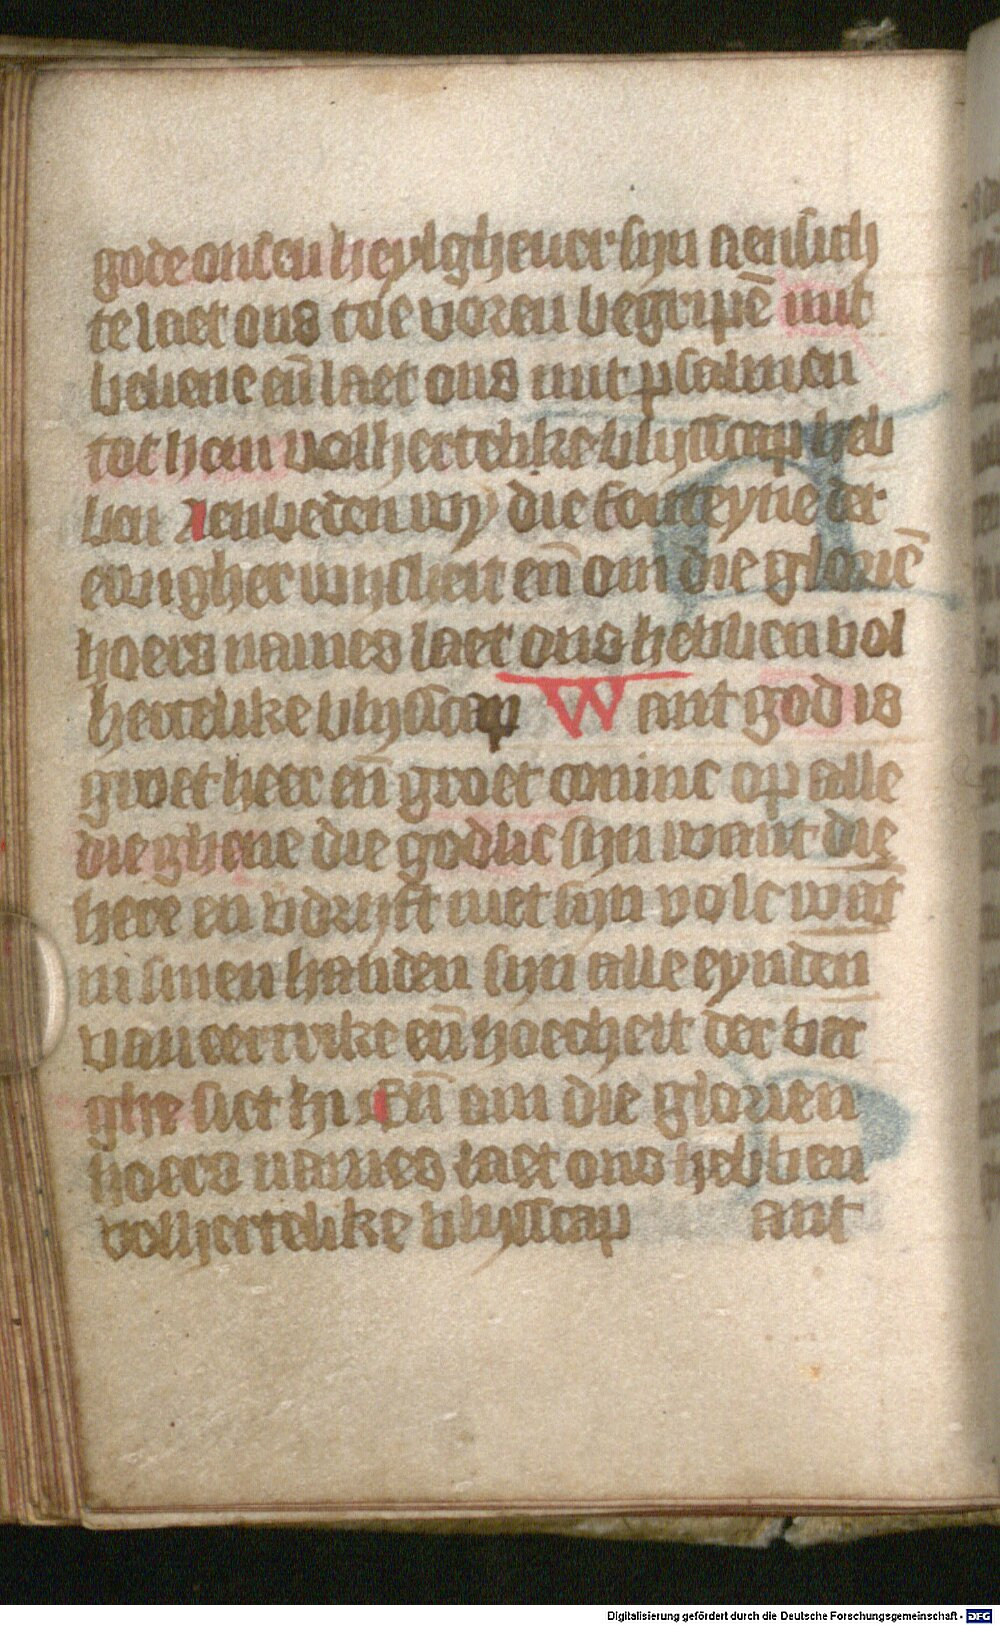 gode onsen heylghever sijn aensich
te laet ons toe voren begripē mit
beliene eñ laet ons mit psalmen
tot hem volhertelike blijsscap heb
ben Aenbeden wy die fonteyne der
ewigher wijsheit eñ om die gloriē
hoers names laet ons hebben vol
hertelike blijsscap Want god is
groet heer eñ groet coninc op alle
die ghene die godlic sijn want die
here en vdrijft niet sijn volc wāt
in sinen handen sijn alle eynden
van eertrike eñ hoecheit der ber
ghe siet hi Eñ om die glorien
hoers names laet ons hebben
volhertelike blijsscap ant
Digitalisierung gefördert durch die Deutsche Forschungsgemeinschaft - DFG